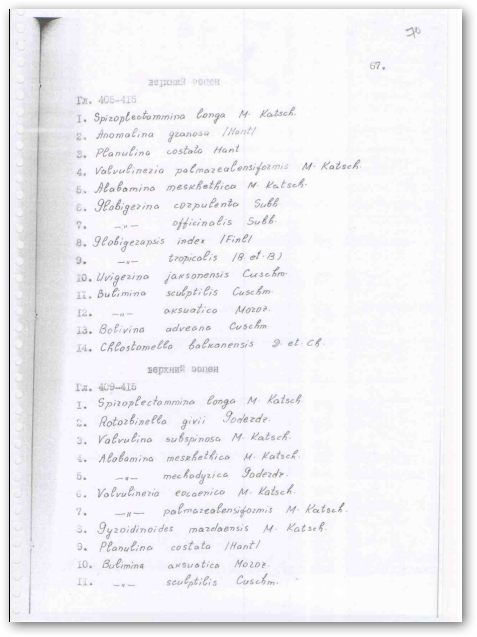 70
67.
верхний эоцен
Гл. 405-415
1. Spiroplectammina longa M. Katsch.
2. Anomalina granosa /Hant/
3. Planulina costata Hant
4. Valvulineria palmarealensiformis M. Katsch.
5. Alabamina meskhethica M. Katsch.
6. Globigerina corpulenta Subb
7. —"— officinalis Subb.
8. Globigerapsis index /Finl/
9. —"— tropicalis /B. et. B)
10. Uvigerina jaksonensis Cuschm.
11. Bulimina sculptilis Cuschm.
12. —"— aksuatica Moroz.
13. Bolivina adveana Cuschm
14. Chlostomella balkanensis D. et. Ch.
верхний эоцен
Гл. 409-415
1. Spiroplectammina longa M. Katsch
2. Rotorbinella givii Goderdz.
3. Valvulina subspinosa M. Katsch.
4. Alabamina meskhethica M. Katsch.
5. —"— mechadyrica Goderdr.
6. Valvulineria eocaenica M. Katsch.
7. —"— palmarealensiformis M. Katsch.
8. Gyroidinoides mardaensis M. Katsch.
9. Planulina costata /Hant/
10. Bulimina aksuatica Moroz.
11. —"— sculptilis Cuschm.